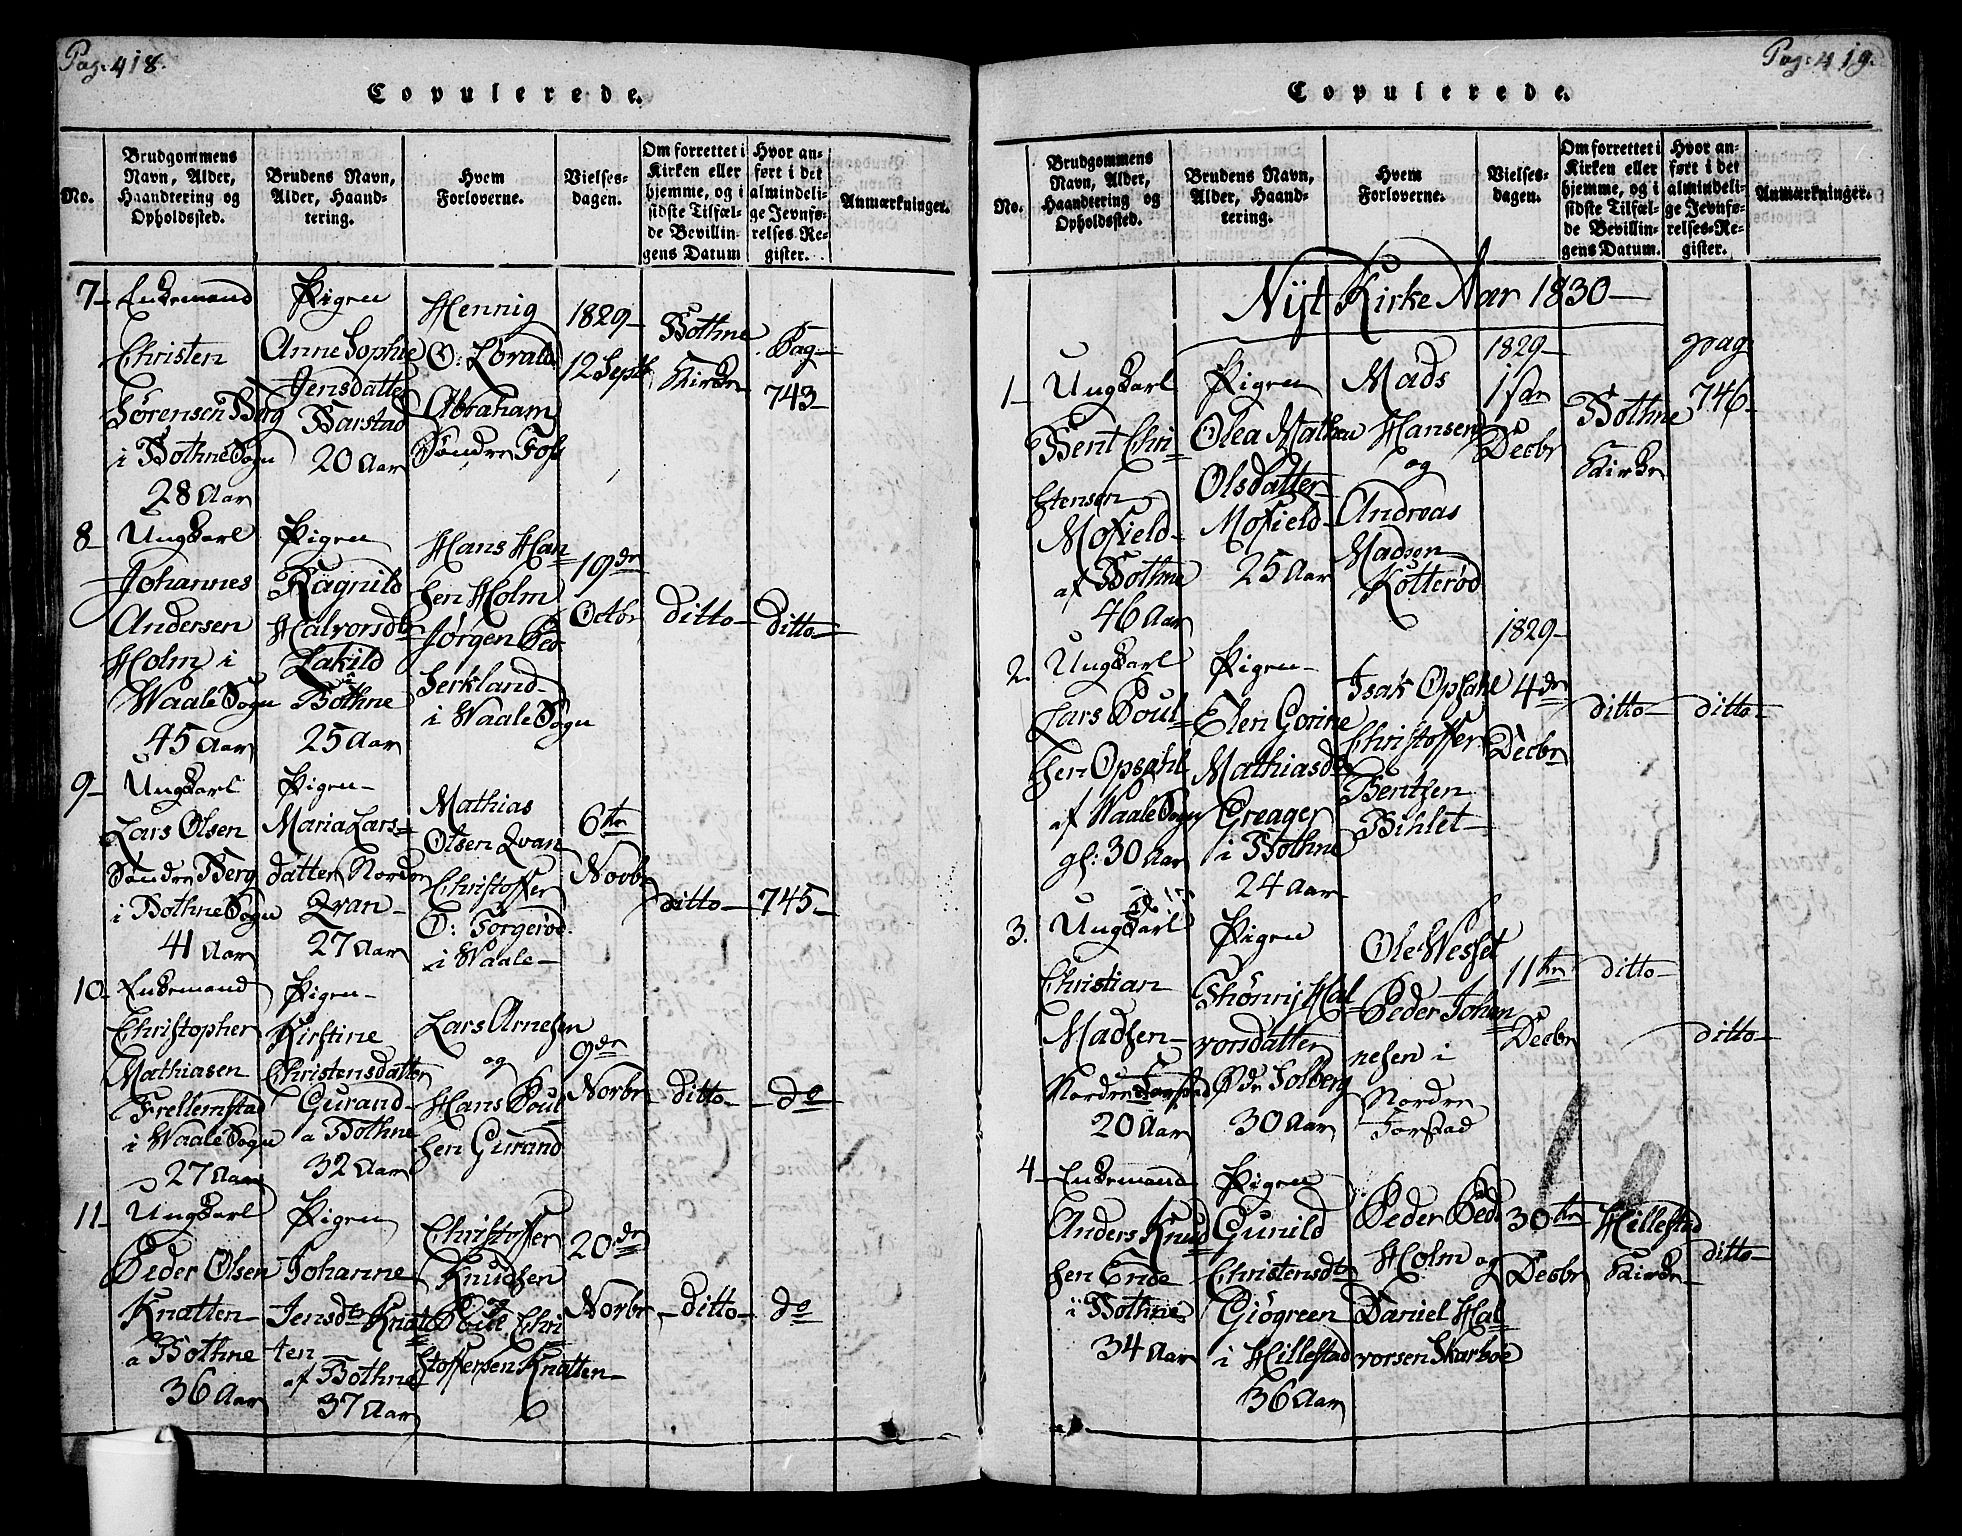 Pag: 418.
Copulerede.
No.
Brudgommens
Navn, Alder,
Haandtering og
Opholdssted.
Brudens Navn,
Alder, Haand-
tering.
Hvem
Forloverne.
Vielses-
dagen.
Om forrettet i
Kirken eller
hjemme, og i
sidste Tilfæl-
de Bevillin-
gens Datum
Hvor an-
ført i det
almindeli-
ge Jevnfø-
relses-Re-
gister.
Anmærkninger.
7-
Enkemand
Christen
Sørensen Berg
i Bothne Sogn
28 Aar
Pigen
Anne Sophie
Jensdatter
Barstad
20 Aar
Hennig
O: Løvald
Abraham
Søndre Fos
1829-
12 Septb
Bothne
Kirke
Pag-
743-
8-
Ungkarl
Johannes
Andersen
Holm i
Waale Sogn
45 Aar
Pigen
Ragnild
Halvorsdtr
Lakild
a Bothne
25 Aar
Hans Han-
sen Holm
Jørgen Pe-
Serkland-
i Waale Sogn
19de
Octbr
ditto-
ditto-
9-
Ungkarl
Lars Olsen
Søndre Berg
i Bothne Sogn
41 Aar
Pigen-
Maria Lars-
datter Nordre
Qvan-
27 Aar
Mathias
Olsen Qvan
Christoffer
O: Torgerød
i Waale-
6te
Novbr
ditto-
745-
10-
Enkemand
Christopher
Mathiasen
Frellemstad
i Waale Sogn
27 Aar
Pigen-
Kirstine
Christensdatter
Gurand-
a Bothne
32 Aar
Lars Arnesen
og
Hans Poul
sen Gurand
9de
Novbr
Ditto-
do
11-
Ungkarl
Peder Olsen
Knatten-
a Bothne
36 Aar
Pigen
Johanne
Jensdtr Knat
ten
af Bothne
37 Aar
Christoffer
Knudsen
og
Poul Chri
stoffersen Knatten-
20de
Novbr
-ditto-
do
Pag: 419.
Copulerede.
No.
Brudgommens
Navn, Alder,
Haandtering og
Opholdssted.
Brudens Navn,
Alder, Haand-
tering.
Hvem
Forloverne.
Vielses-
dagen.
Om forrettet i
Kirken eller
hjemme, og i
sidste Tilfæl-
de Bevillin-
gens Datum.
Hvor an-
ført i det
almindeli-
ge Jevnfø-
relses-Re-
gister.
Anmærkninger.
Nyt Kirke Aar 1830-
1-
Ungkarl
Bent Chri-
stensen
Mofield-
af Bothne
46 Aar
Pigen
Olea Mathea
Olsdatter
Mofield-
25 Aar
Mads
Hansen
og
Andreas
Madsen
Kötterød
1829-
1ste
Decbr
Bothne
Kirke
pag
746-
2.
Ungkarl
Lars Poul-
sen Opsahl
af Waale Sogn
gl: 30 Aar
Pigen-
Elen Gorine
Mathiasd
Greager
i Bothne
24 Aar
Isak Opsahl
Christoffer
Bentsen
Bihlet-
1829-
4de
Decbr
ditto-
ditto-
3.
Ungkarl
Christian
Madsen-
Nordre Forstad
20 Aar
Pigen
Thönnij Hal
vorsdatter
Solberg
30 Aar
Ole Wesset
Peder Johan
nesen i
Nordre
Forstad
11te
Decbr
ditto-
ditto-
4-
Enkemand
Anders Knud
sen Ende
i Bothne
34 Aar
Pigen
Gunild
Christensdtr
Gjögreen
i Hillestad
36 Aar
Peder Pede
Holm og
Daniel Hal
vorsen Skarboe
30te
Decbr
Hillestad
Kirke-
ditto-